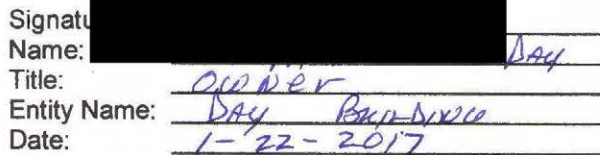 Signatu
Name: DAY
Title: Owner
Entity Name: DAY BUILDING
Date: 1-22-2017